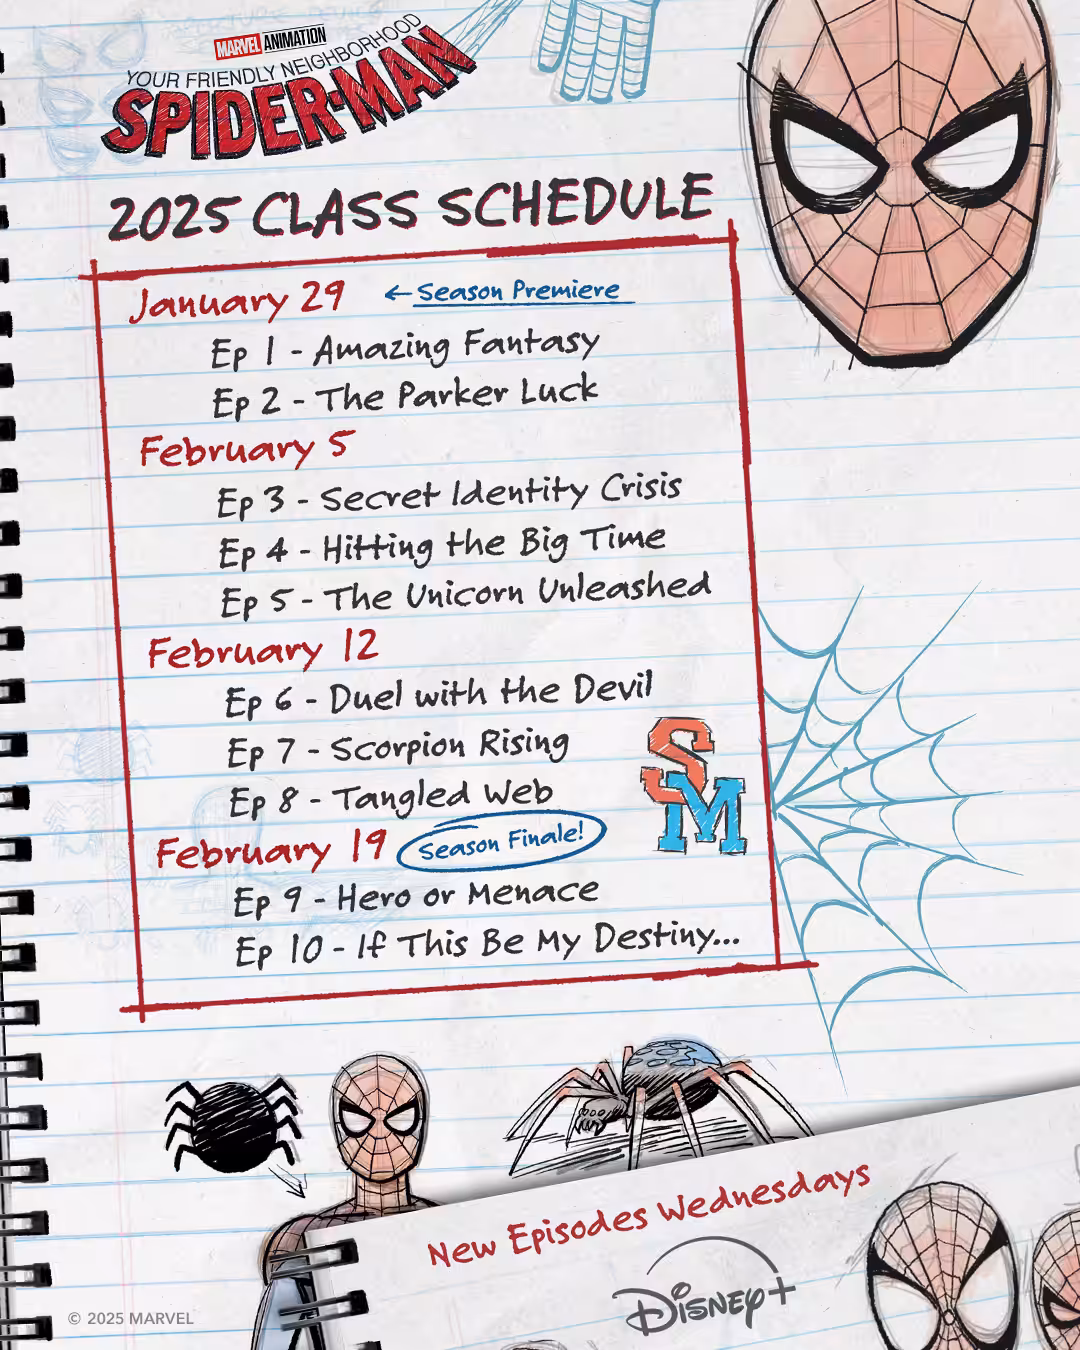 MARVEL ANIMATION
YOUR FRIENDLY NEIGHBORHOOD
SPIDER-MAN
2025 CLASS SCHEDULE
January 29 ← Season Premiere
Ep 1 - Amazing Fantasy
Ep 2 - The Parker Luck
February 5
Ep 3 - Secret Identity Crisis
Ep 4 - Hitting the Big Time
Ep 5 - The Unicorn Unleashed
February 12
Ep 6 - Duel with the Devil
Ep 7 - Scorpion Rising
Ep 8 - Tangled Web
SM
February 19 Season Finale!
Ep 9 - Hero or Menace
Ep 10 - If This Be My Destiny...
New Episodes Wednesdays
Disney+
© 2025 MARVEL